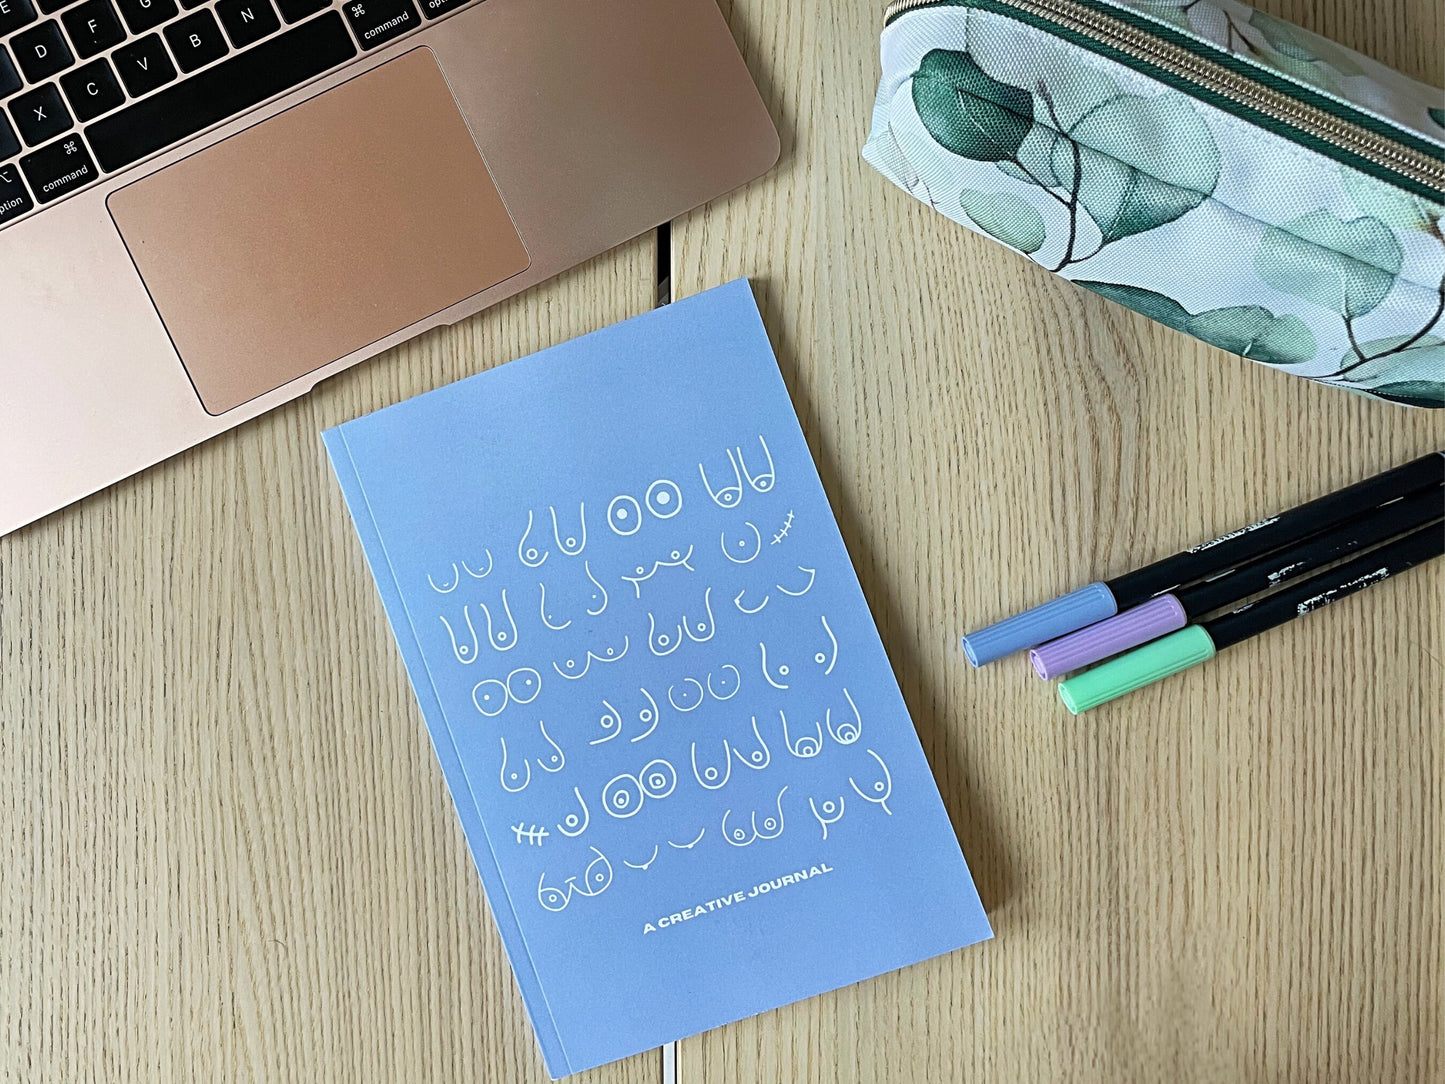 E
D
F
G
X
C
V
B
N
⌘
command
option
⌥
option
⌘
command
A CREATIVE JOURNAL